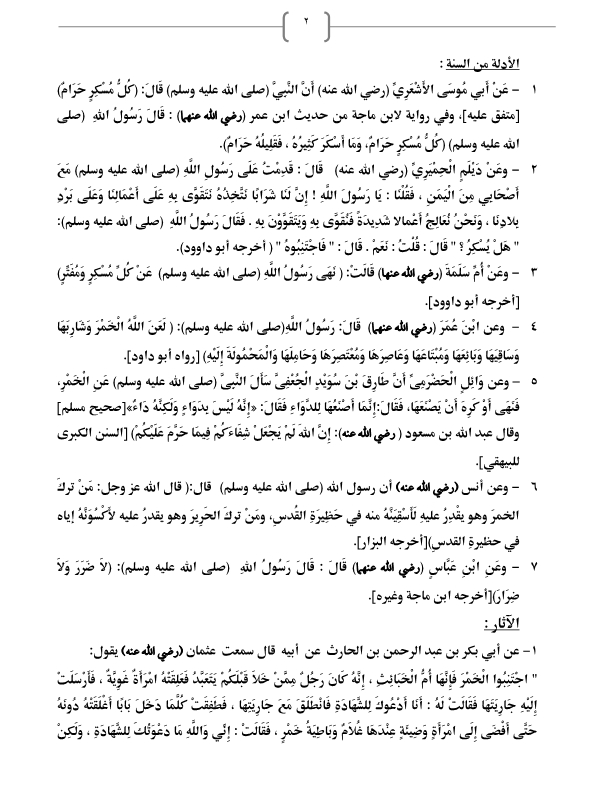 ٢
الأدلة من السنة :
١ - عَنْ أَبِي مُوسَى الأَشْعَرِيِّ (رضي الله عنه) أَنَّ النَّبِيَّ (صلى الله عليه وسلم) قَالَ: (كُلُّ مُسْكِرٍ حَرَامٌ)
[متفق عليه]، وفي رواية لابن ماجة من حديث ابن عمر (رضي الله عنهما) : قَالَ رَسُولُ اللهِ (صلى
الله عليه وسلم) (كُلُّ مُسْكِرٍ حَرَامٌ، وَمَا أَسْكَرَ كَثِيرُهُ ، فَقَلِيلُهُ حَرَامٌ).
٢ - وعَنْ دَيْلَمٍ الْحِمْيَرِيِّ (رضي الله عنه) قَالَ : قَدِمْتُ عَلَى رَسُولِ اللَّهِ (صلى الله عليه وسلم) مَعَ
أَصْحَابِي مِنَ الْيَمَنِ ، فَقُلْنَا : يَا رَسُولَ اللَّهِ ! إِنَّ لَنَا شَرَابًا نَتَّخِذُهُ نَتَقَوَّى بِهِ عَلَى أَعْمَالِنَا وَعَلَى بَرْدِ
بِلادِنَا ، وَنَحْنُ نُعَالِجُ أَعْمالا شَدِيدَةً فَنَقْوَى بِهِ وَيَتَقَوَّوْنَ بِهِ . فَقَالَ رَسُولُ اللَّهِ (صلى الله عليه وسلم):
" هَلْ يُسْكِرُ ؟ " قَالَ : قُلْتُ : نَعَمْ . قَالَ : " فَاجْتَنِبُوهُ " ( أخرجه أبو داوود).
٣ - وعَنْ أُمِّ سَلَمَةَ (رضي الله عنها) قَالَتْ: ( نَهَى رَسُولُ اللَّهِ (صلى الله عليه وسلم) عَنْ كُلِّ مُسْكِرٍ وَمُفَتِّرٍ)
[أخرجه أبو داوود].
٤ - وعن ابْنَ عُمَرَ (رضي الله عنهما) قَالَ: رَسُولُ اللَّهِ(صلى الله عليه وسلم): ( لَعَنَ اللَّهُ الْخَمْرَ وَشَارِبَهَا
وَسَاقِيَهَا وَبَائِعَهَا وَمُبْتَاعَهَا وَعَاصِرَهَا وَمُعْتَصِرَهَا وَحَامِلَهَا وَالْمَحْمُولَةَ إِلَيْهِ) [رواه أبو داود].
٥ - وعن وَائِلٍ الْحَضْرَمِيِّ أَنَّ طَارِقَ بْنَ سُوَيْدٍ الْجُعْفِيَّ سَأَلَ النَّبِيَّ (صلى الله عليه وسلم) عَنِ الْخَمْرِ،
فَنَهَى أَوْ كَرِهَ أَنْ يَصْنَعَهَا، فَقَالَ:إِنَّمَا أَصْنَعُهَا لِلدَّوَاءِ فَقَالَ: «إِنَّهُ لَيْسَ بِدَوَاءٍ وَلَكِنَّهُ دَاءٌ»[صحيح مسلم]
وقال عبد الله بن مسعود ( رضي الله عنه): إِنَّ اللهَ لَمْ يَجْعَلْ شِفَاءَكُمْ فِيمَا حَرَّمَ عَلَيْكُمْ) [السنن الكبرى
للبيهقي].
٦ - وعن أنس (رضي الله عنه) أن رسول الله (صلى الله عليه وسلم) قال:( قال الله عز وجل: مَنْ تركَ
الخمرَ وهو يقْدِرُ عليهِ لَأَسْقِيَنَّهُ منه في حَظِيرَةِ القُدسِ، ومَنْ تركَ الحَرِيرَ وهو يقدرُ عليه لأَكْسُوَنَّهُ إياه
في حظيرةِ القدسِ)[أخرجه البزار].
٧ - وعَنِ ابْنِ عَبَّاسٍ (رضي الله عنهما) قَالَ : قَالَ رَسُولُ اللهِ (صلى الله عليه وسلم): (لاَ ضَرَرَ وَلاَ
ضِرَارَ)[أخرجه ابن ماجة وغيره].
الآثار :
١- عن أبي بكر بن عبد الرحمن بن الحارث عن أبيه قال سمعت عثمان (رضي الله عنه) يقول:
" اجْتَنِبُوا الْخَمْرَ فَإِنَّهَا أُمُّ الْخَبَائِثِ ، إِنَّهُ كَانَ رَجُلٌ مِمَّنْ خَلاَ قَبْلَكُمْ يَتَعَبَّدُ فَعَلِقَتْهُ امْرَأَةٌ غَوِيَّةٌ ، فَأَرْسَلَتْ
إِلَيْهِ جَارِيَتَهَا فَقَالَتْ لَهُ : أَنَا أَدْعُوكَ لِلشَّهَادَةِ فَانْطَلَقَ مَعَ جَارِيَتِهَا ، فَطَفِقَتْ كُلَّمَا دَخَلَ بَابًا أَغْلَقَتْهُ دُونَهُ
حَتَّى أَفْضَى إِلَى امْرَأَةٍ وَضِيئَةٍ عِنْدَهَا غُلاَمٌ وَبَاطِيَةُ خَمْرٍ ، فَقَالَتْ : إِنِّي وَاللَّهِ مَا دَعَوْتُكَ لِلشَّهَادَةِ ، وَلَكِنْ